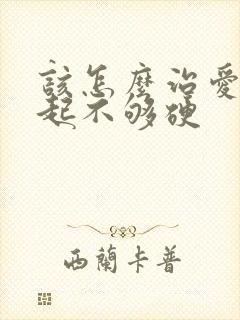 該怎麼治愛
起不够硬
西蘭卡普